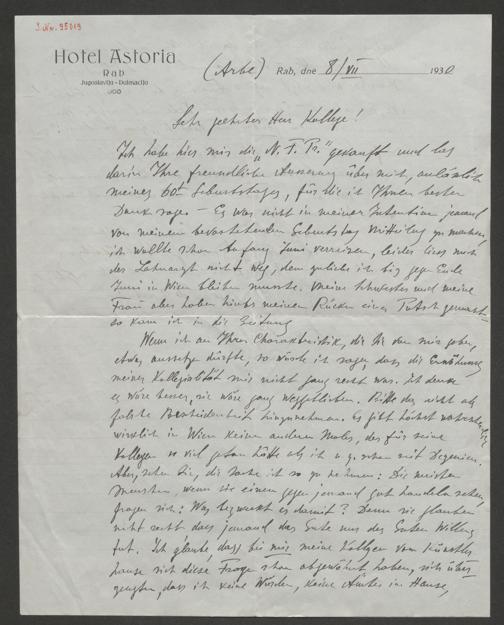 I.Nr. 95019
Hotel Astoria
Rab
Jugoslavija - Dalmacija
(Arbe) Rab, dne 8/VII 1930
Sehr geehrter Herr Kollege!
Ich habe hier mir die „N. F. Pr." gekauft und las
darin Ihre freundliche Äusserung über mich, anlässlich
meines 60t Geburtstages, für die ich Ihnen besten
Dank sage - Es war nicht in meiner Intention jemand
von meinem bevorstehenden Geburtstag Mitteilung zu machen,
ich wollte schon Anfang Juni verreisen, leider liess mich
der Zahnarzt nicht weg, dem zuliebe ich bis gegen Ende
Juni in Wien bleiben musste. Meine Schwester und meine
Frau aber haben hinter meinem Rücken einen Putsch gemacht
so kam ich in die Zeitung
Wenn ich an Ihrer Charakteristik, die Sie von mir geben,
etwas aussetzen dürfte, so würde ich sagen, dass die Erwähnung
meiner Kollegialität mir nicht ganz recht war. Ich denke
es wäre besser, sie wäre ganz weggeblieben. Bitte das nicht als
falsche Bescheidenheit hinzunehmen. Es gibt höchst wahrscheinlich
wirklich in Wien keinen anderen Maler, der für seine
Kollegen so viel getan hätte als ich u. z. schon seit Dezennien.
Aber, sehen Sie, die Sache ist so zu nehmen: Die meisten
Menschen, wenn sie einen gegen jemand gut handeln sehen,
fragen sich: Was bezweckt er damit? Denn sie glauben
nicht recht dass jemand das Gute nur des Guten Willen
tut. Ich glaube dass bei mir meine Kollegen vom Künstler
hause sich diese Frage schon abgewöhnt haben, sich über
zeugten, dass ich keine Würden, keine Ämter im Hause,